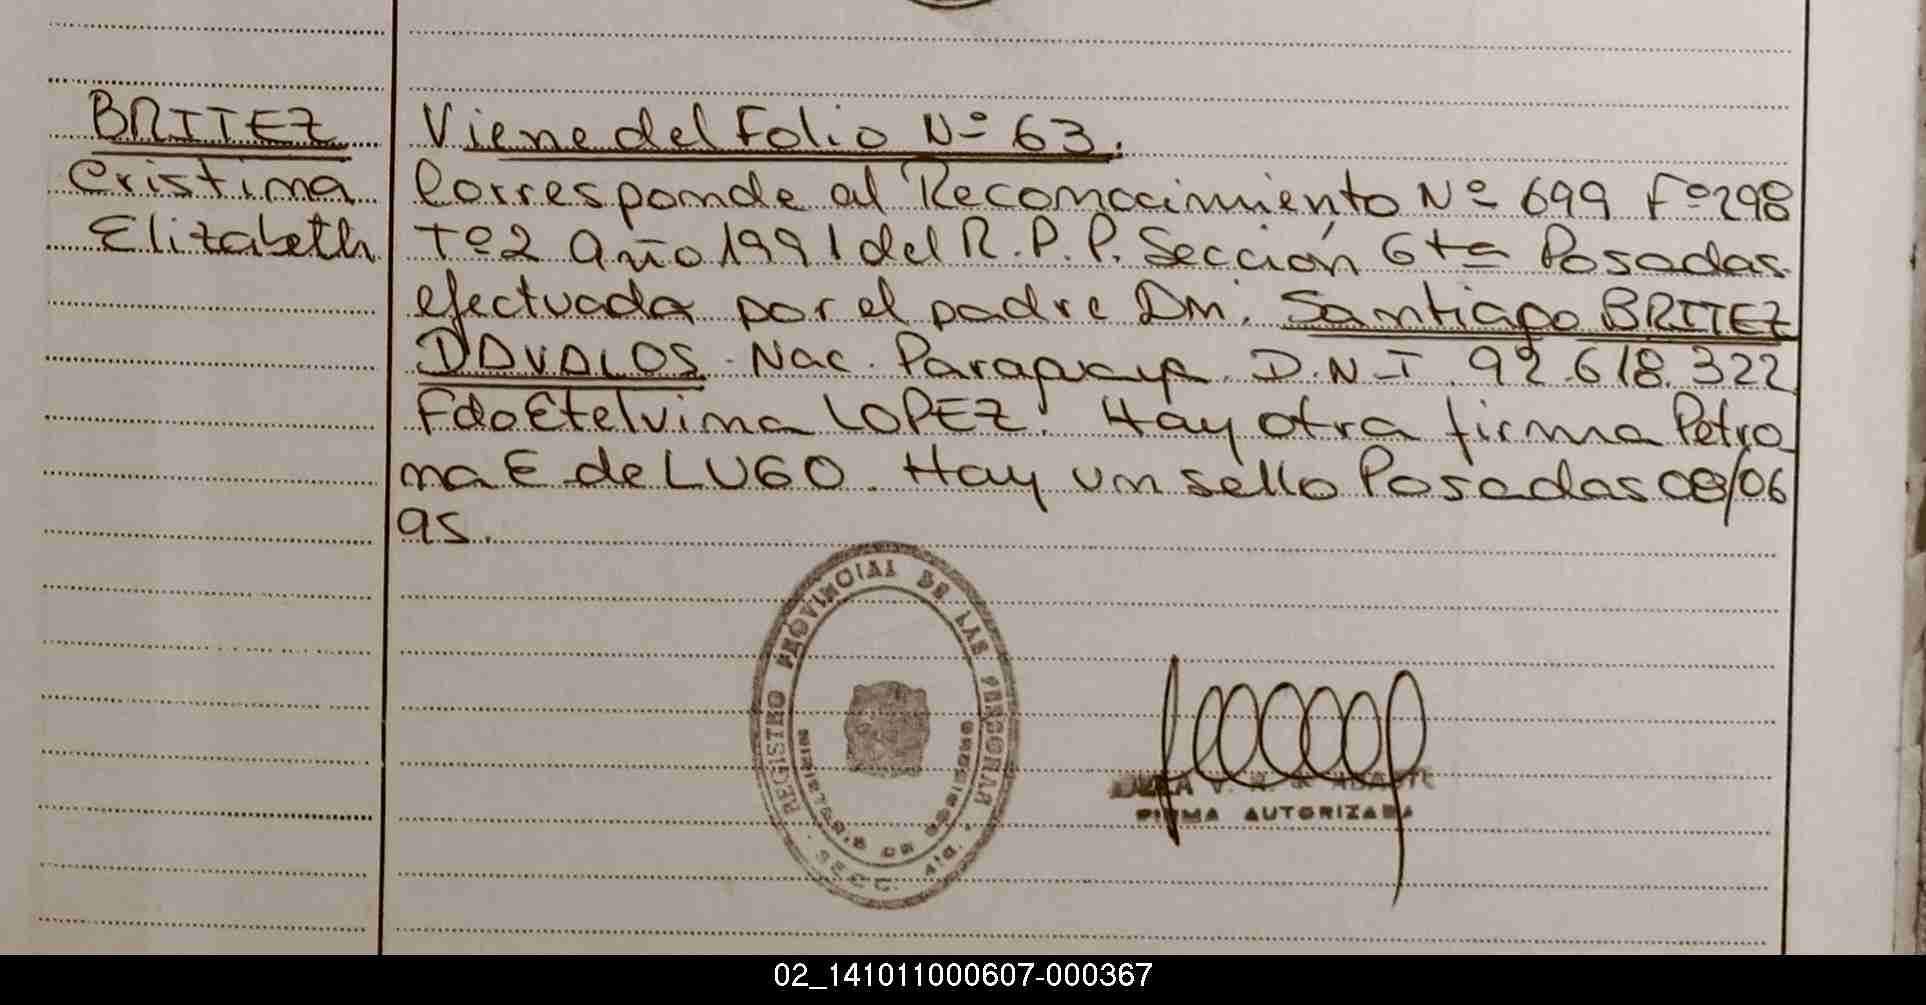 BRITEZ
Cristina
Elizabeth
Viene del Folio Nº 63.
Corresponde al Reconocimiento Nº 699 Fº298
Tº2 Año 1991 del R.P.P. Sección 6ta Posadas
efectuada por el padre Dn. Santiago BRITEZ
DAVALOS. Nac. Paraguaya. D.N.I 92.618.322
Fdo Etelvina LOPEZ. Hay otra firma Petro
na E de LUGO. Hay un sello Posadas 08/06
95.
REGISTRO PROVINCIAL DE LAS PERSONAS
SECC. 4ta.
FIRMA AUTORIZADA
02_141011000607-000367